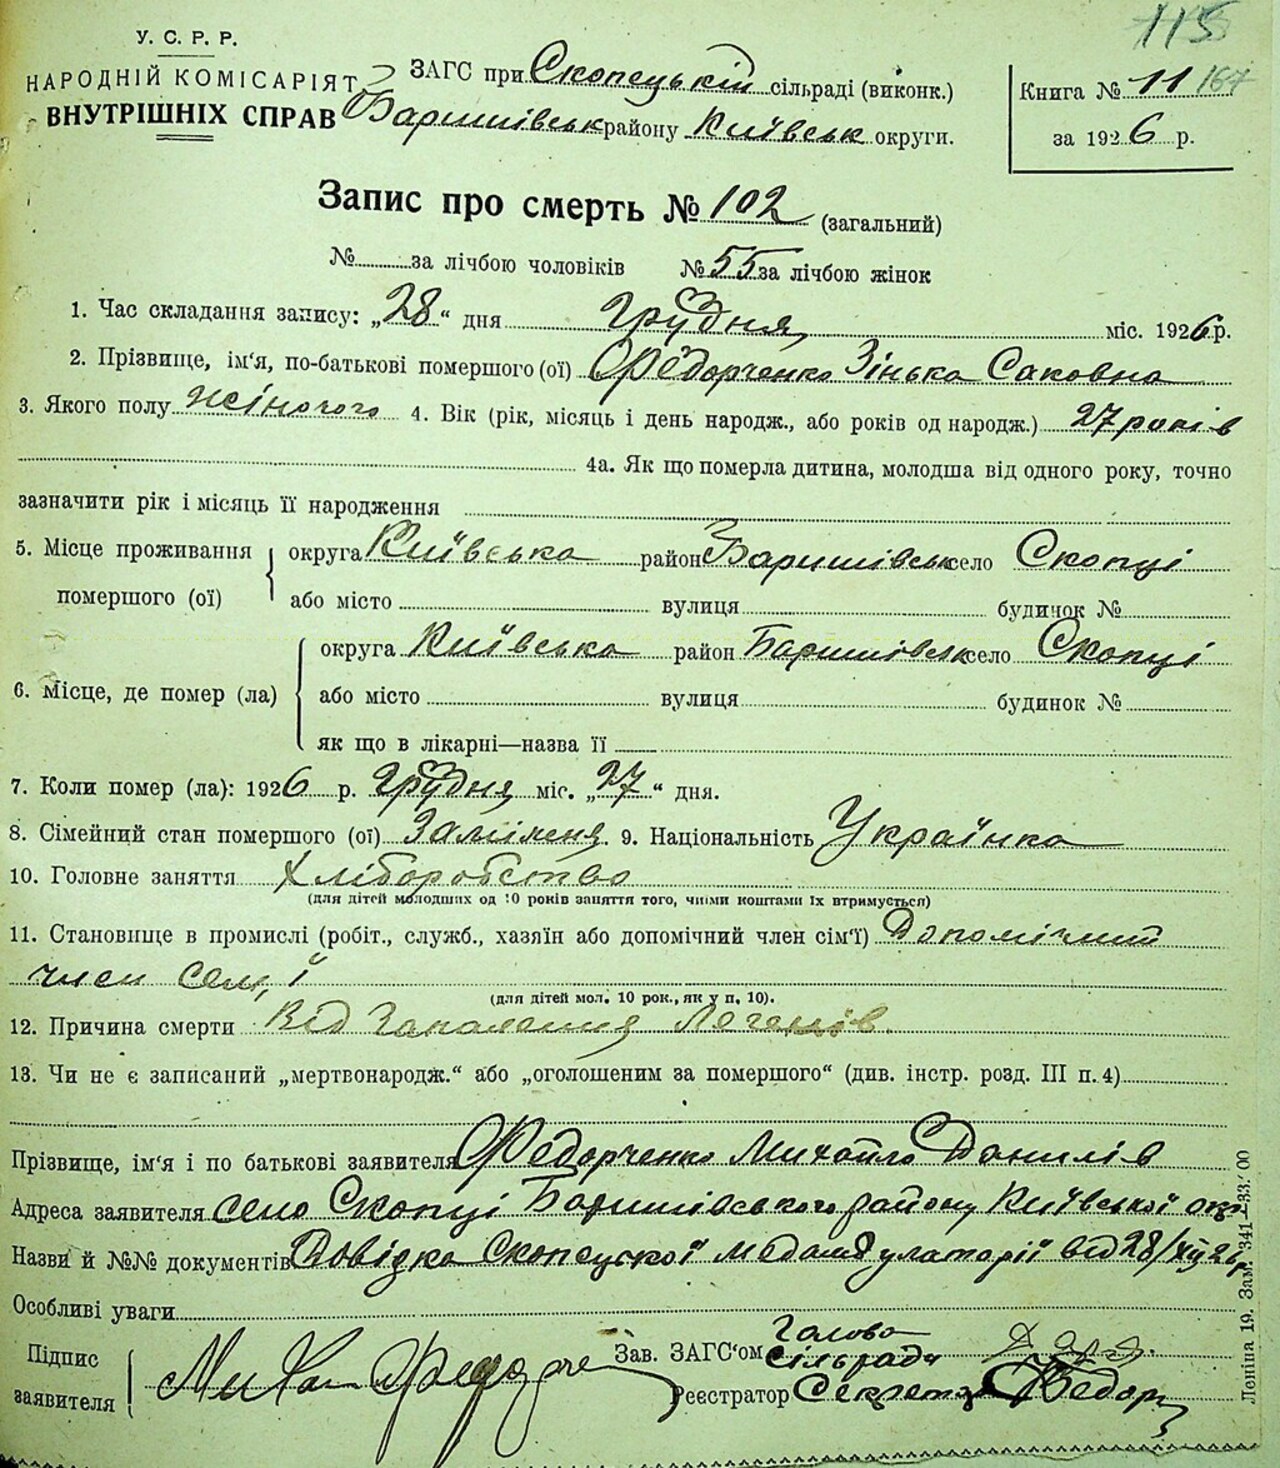 115
У. С. Р. Р.
НАРОДНІЙ КОМІСАРІЯТ
ВНУТРІШНІХ СПРАВ
ЗАГС при Скопецькій сільраді (виконк.)
Баришівськ району Київськ округи.
Книга № 11 167
за 1926 р.
Запис про смерть № 102 (загальний)
№ за лічбою чоловіків № 55 за лічбою жінок
1. Час складання запису: „28“ дня Грудня міс. 1926 р.
2. Прізвище, ім‘я, по-батькові помершого (ої) Федорченко Зінька Саковна
3. Якого полу жіночого 4. Вік (рік, місяць і день народж., або років од народж.) 27 років
4а. Як що померла дитина, молодша від одного року, точно
зазначити рік і місяць її народження
5. Місце проживання помершого (ої) округа Київська район Баришівськ село Скопці
або місто вулиця будинок №
6. Місце, де помер (ла) округа Київська район Баришівськ село Скопці
або місто вулиця будинок №
як що в лікарні—назва її
7. Коли помер (ла): 1926 р. Грудня міс. „27“ дня.
8. Сімейний стан помершого (ої) Заміжня 9. Національність Українка
10. Головне заняття Хліборобство
(для дітей молодших од 10 років заняття того, чиїми коштами їх втримується)
11. Становище в промислі (робіт., служб., хазяїн або допомічний член сім‘ї) Допомічний
член сем‚ї
(для дітей мол. 10 рок., як у п. 10).
12. Причина смерти Від Запалення Легенів.
13. Чи не є записаний „мертвонародж.“ або „оголошеним за помершого“ (див. інстр. розд. III п. 4)
Прізвище, ім‘я і по батькові заявителя Федорченко Михайло Данилів
Адреса заявителя село Скопці Баришівського району Київської окр.
Назви й №№ документів Довідка Скопецької від 28/XII 26 р
Особливі уваги
Підпис заявителя Миха Федорче
Зав. ЗАГС‘ом Голова сільради
Реєстратор Секретар Федор
Леніна 19. Зам. 341—33.